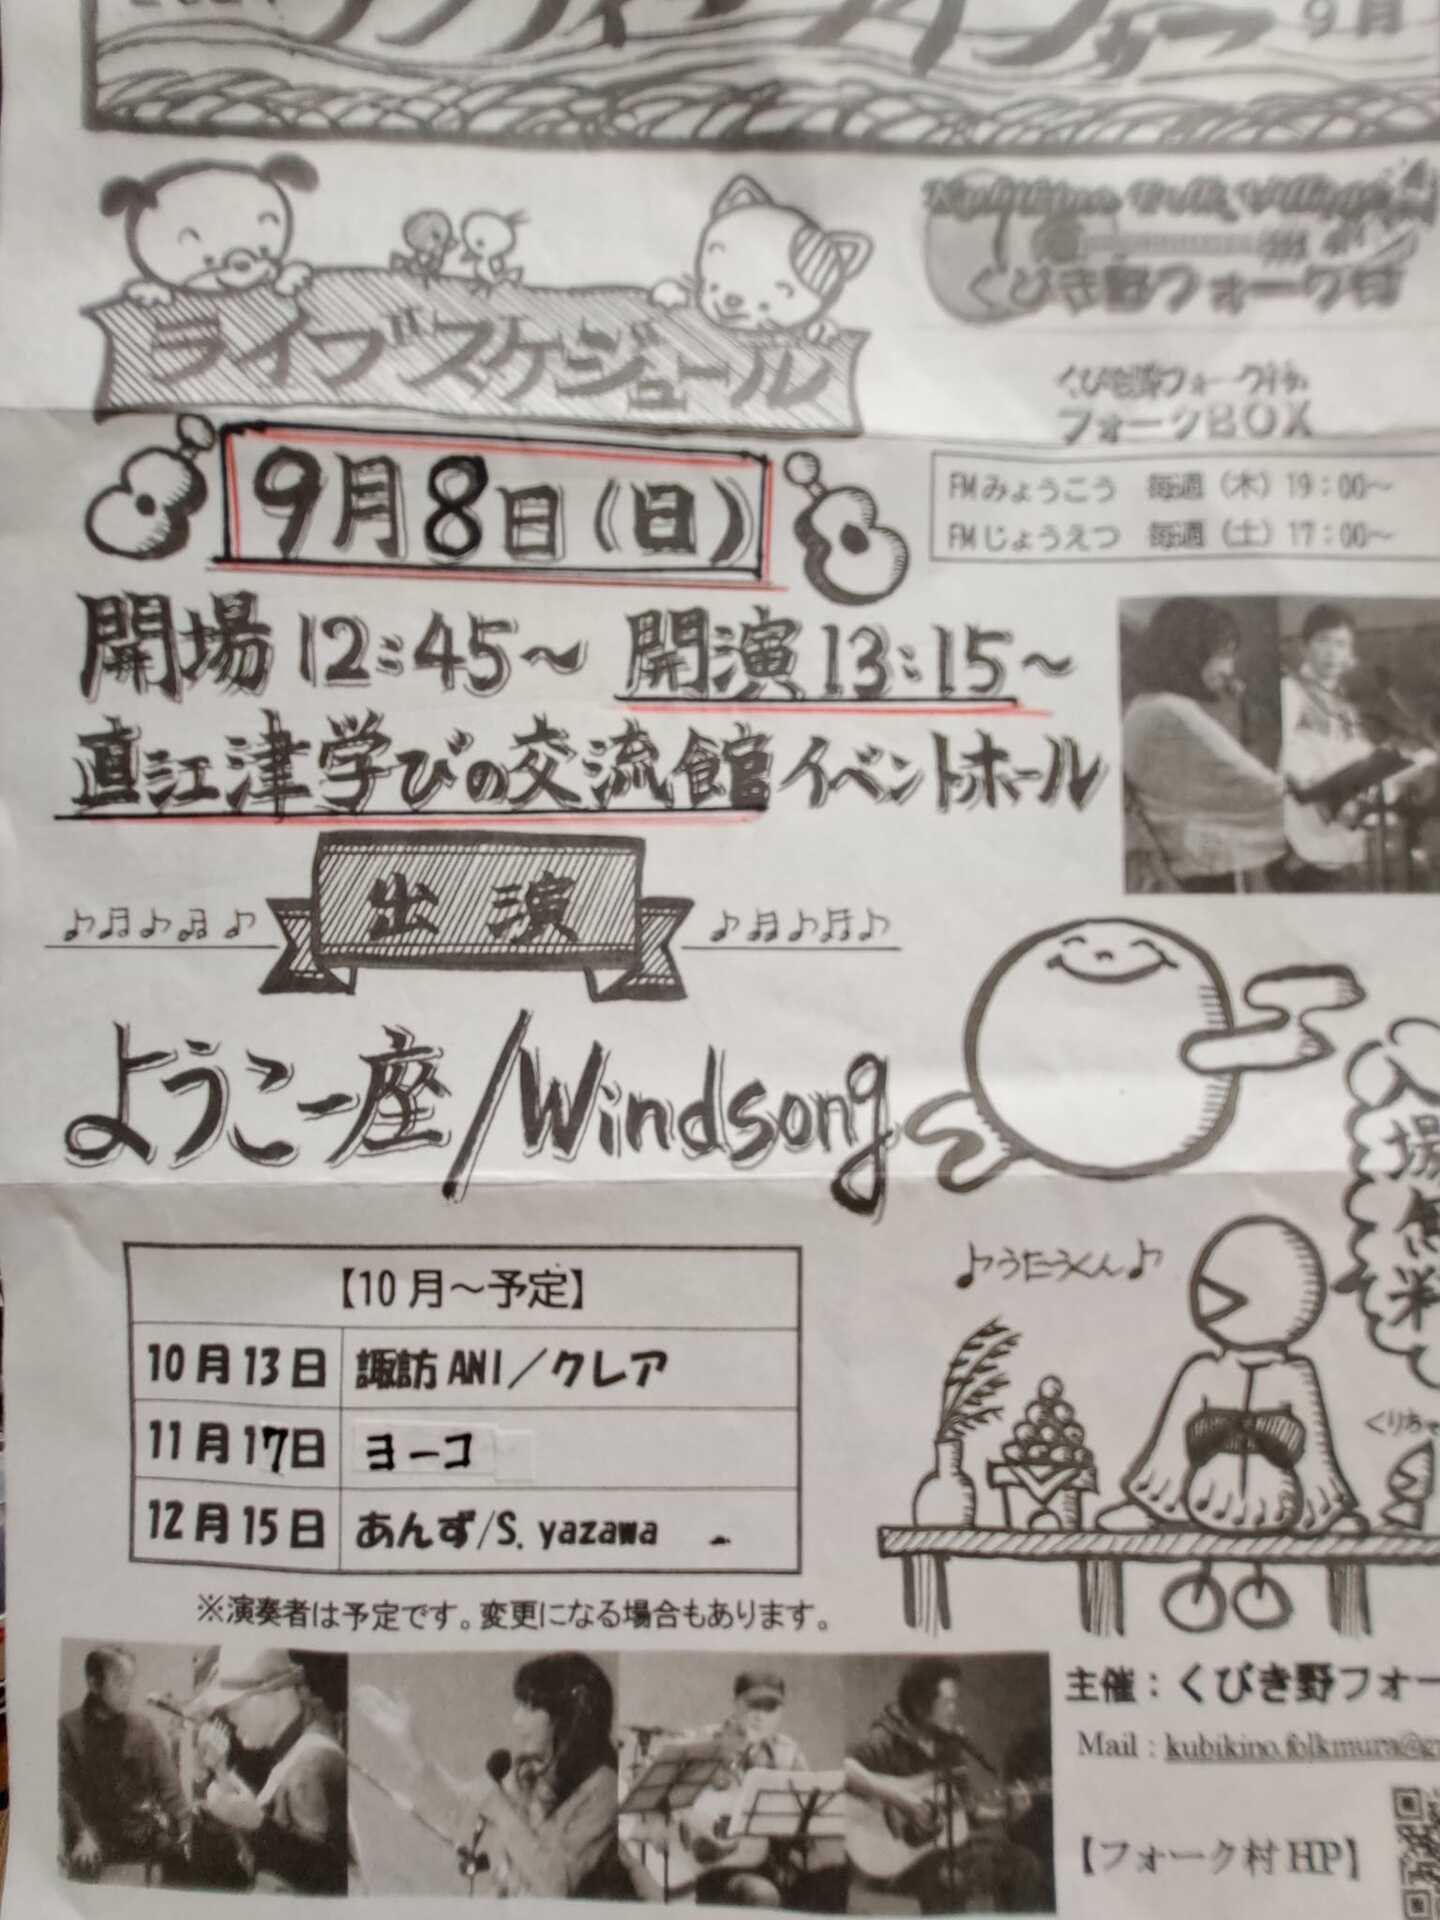 9月
ライブスケジュール
くびき野フォーク村
くびき野フォーク村の
フォークBOX
9月8日(日)
FMみょうこう 毎週(木)19:00~
FMじょうえつ 毎週(土)17:00~
開場12:45~ 開演13:15~
直江津学びの交流館イベントホール
出演
ようこ一座/Windsong
入場無料
♪うたうくん♪
【10月~予定】
10月13日 諏訪ANI/クレア
11月17日 ヨーコ
12月15日 あんず/S.yazawa
※演奏者は予定です。変更になる場合もあります。
主催:くびき野フォー
Mail:kubikino.folkmura@
【フォーク村HP】